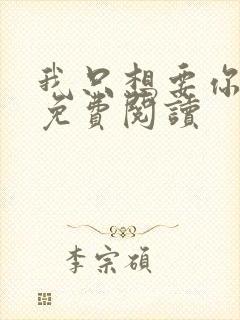 我只想要你
免費閱讀
李宗碩